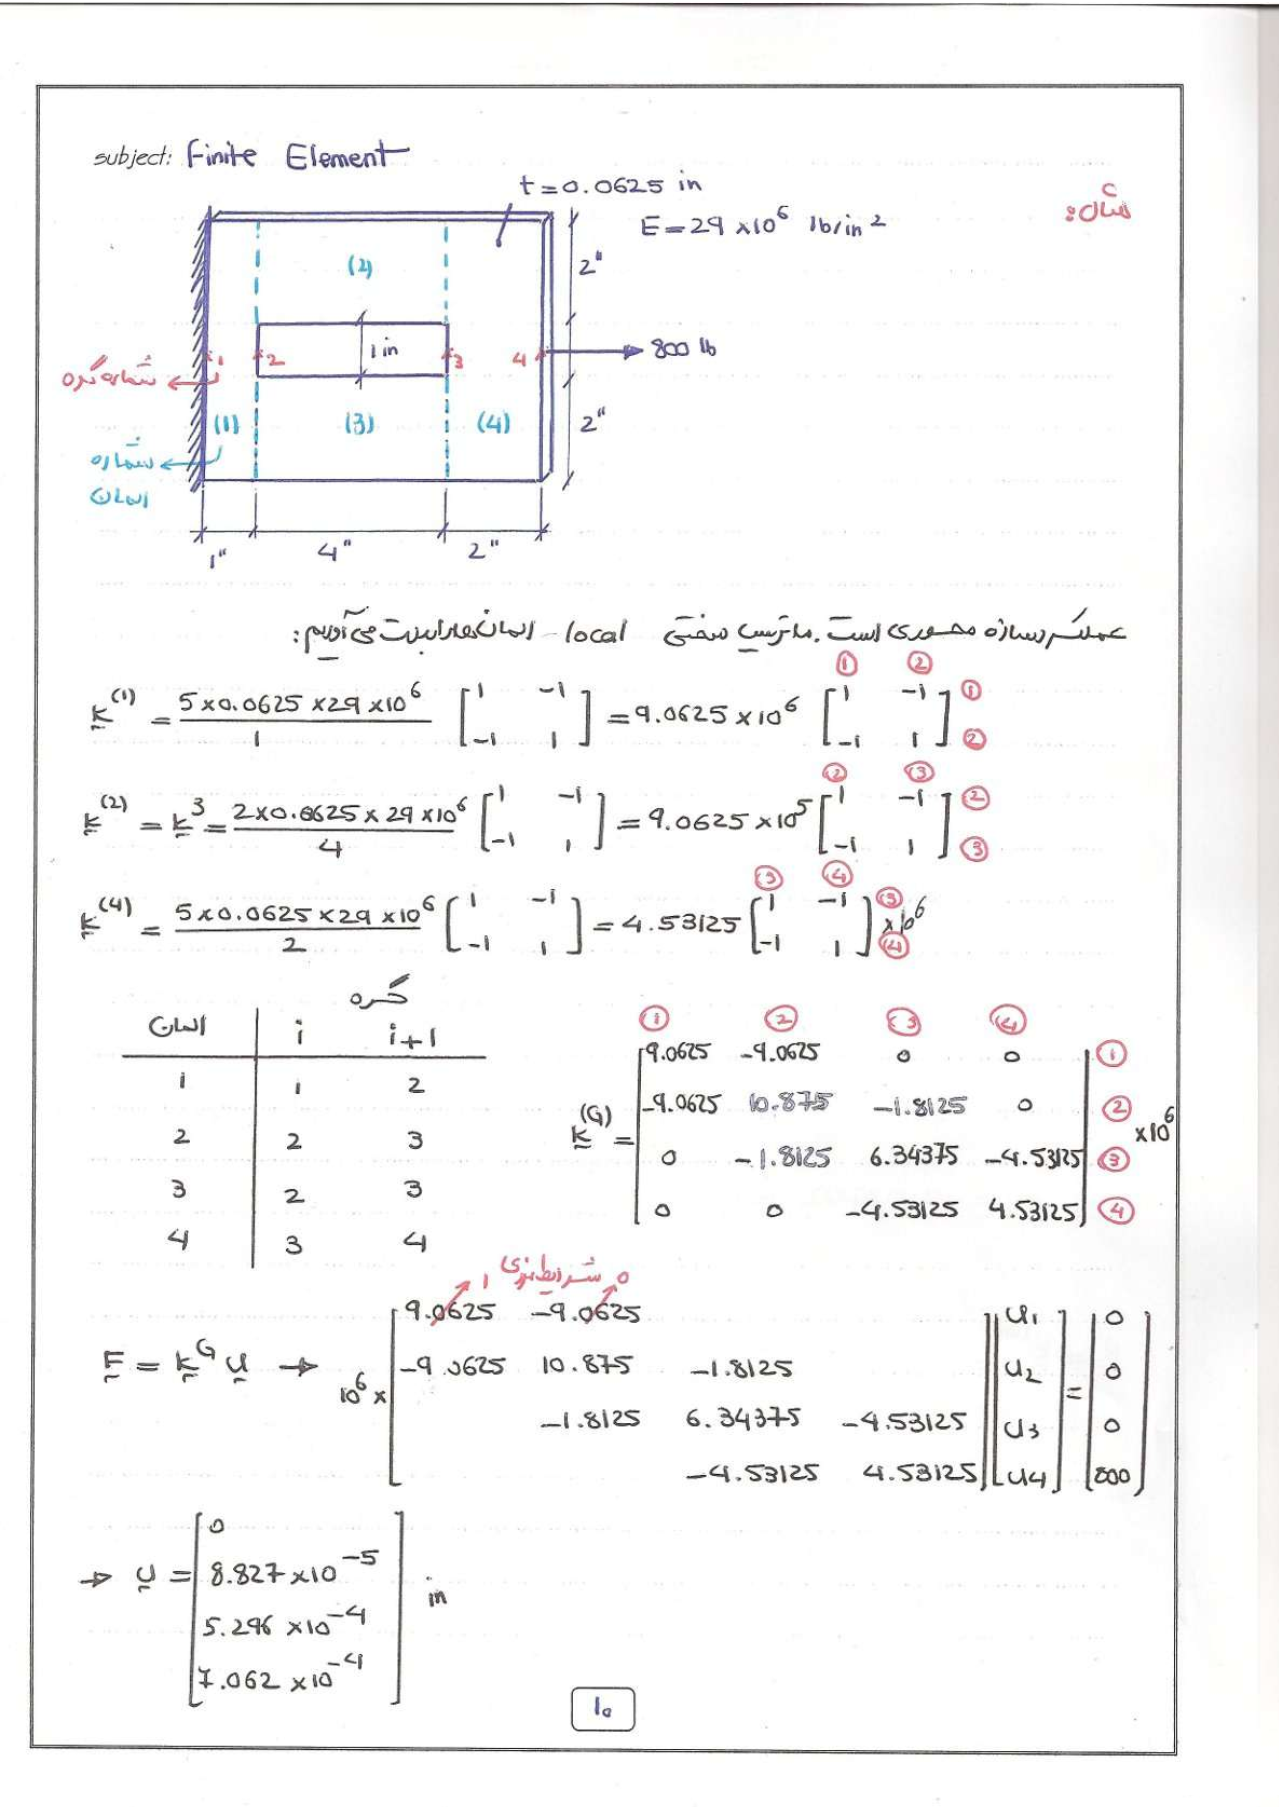 subject: Finite Element
مثال:
t=0.0625 in
E=29 ×10^6 lb/in^2
(2)
2"
1 in
1
2
3
4
800 lb
شماره گره
(1)
(3)
(4)
2"
شماره
المان
1"
4"
2"
عملکرد سازه محوری است. ماتریس سختی local المان‌ها را بدست می‌آوریم:
① ②
k^(1) = 5×0.0625×29×10^6 / 1 [1 -1; -1 1] = 9.0625×10^6 [1 -1; -1 1] ① ②
② ③
k^(2) = k^3 = 2×0.0625×29×10^6 / 4 [1 -1; -1 1] = 9.0625×10^5 [1 -1; -1 1] ② ③
③ ④
k^(4) = 5×0.0625×29×10^6 / 2 [1 -1; -1 1] = 4.53125 [1 -1; -1 1] ×10^6 ③ ④
گره
المان i i+1
1 1 2
2 2 3
3 2 3
4 3 4
① ② ③ ④
9.0625 -9.0625 0 0 ①
-9.0625 10.875 -1.8125 0 ②
k^(G) = ×10^6
0 -1.8125 6.34375 -4.53125 ③
0 0 -4.53125 4.53125 ④
1 شرایط مرزی 0
9.0625 -9.0625 u1 0
F = k^G u → 10^6 × -9.0625 10.875 -1.8125 u2 = 0
-1.8125 6.34375 -4.53125 u3 0
-4.53125 4.53125 u4 800
0
→ u = 8.827×10^-5 in
5.296 ×10^-4
7.062 ×10^-4
10